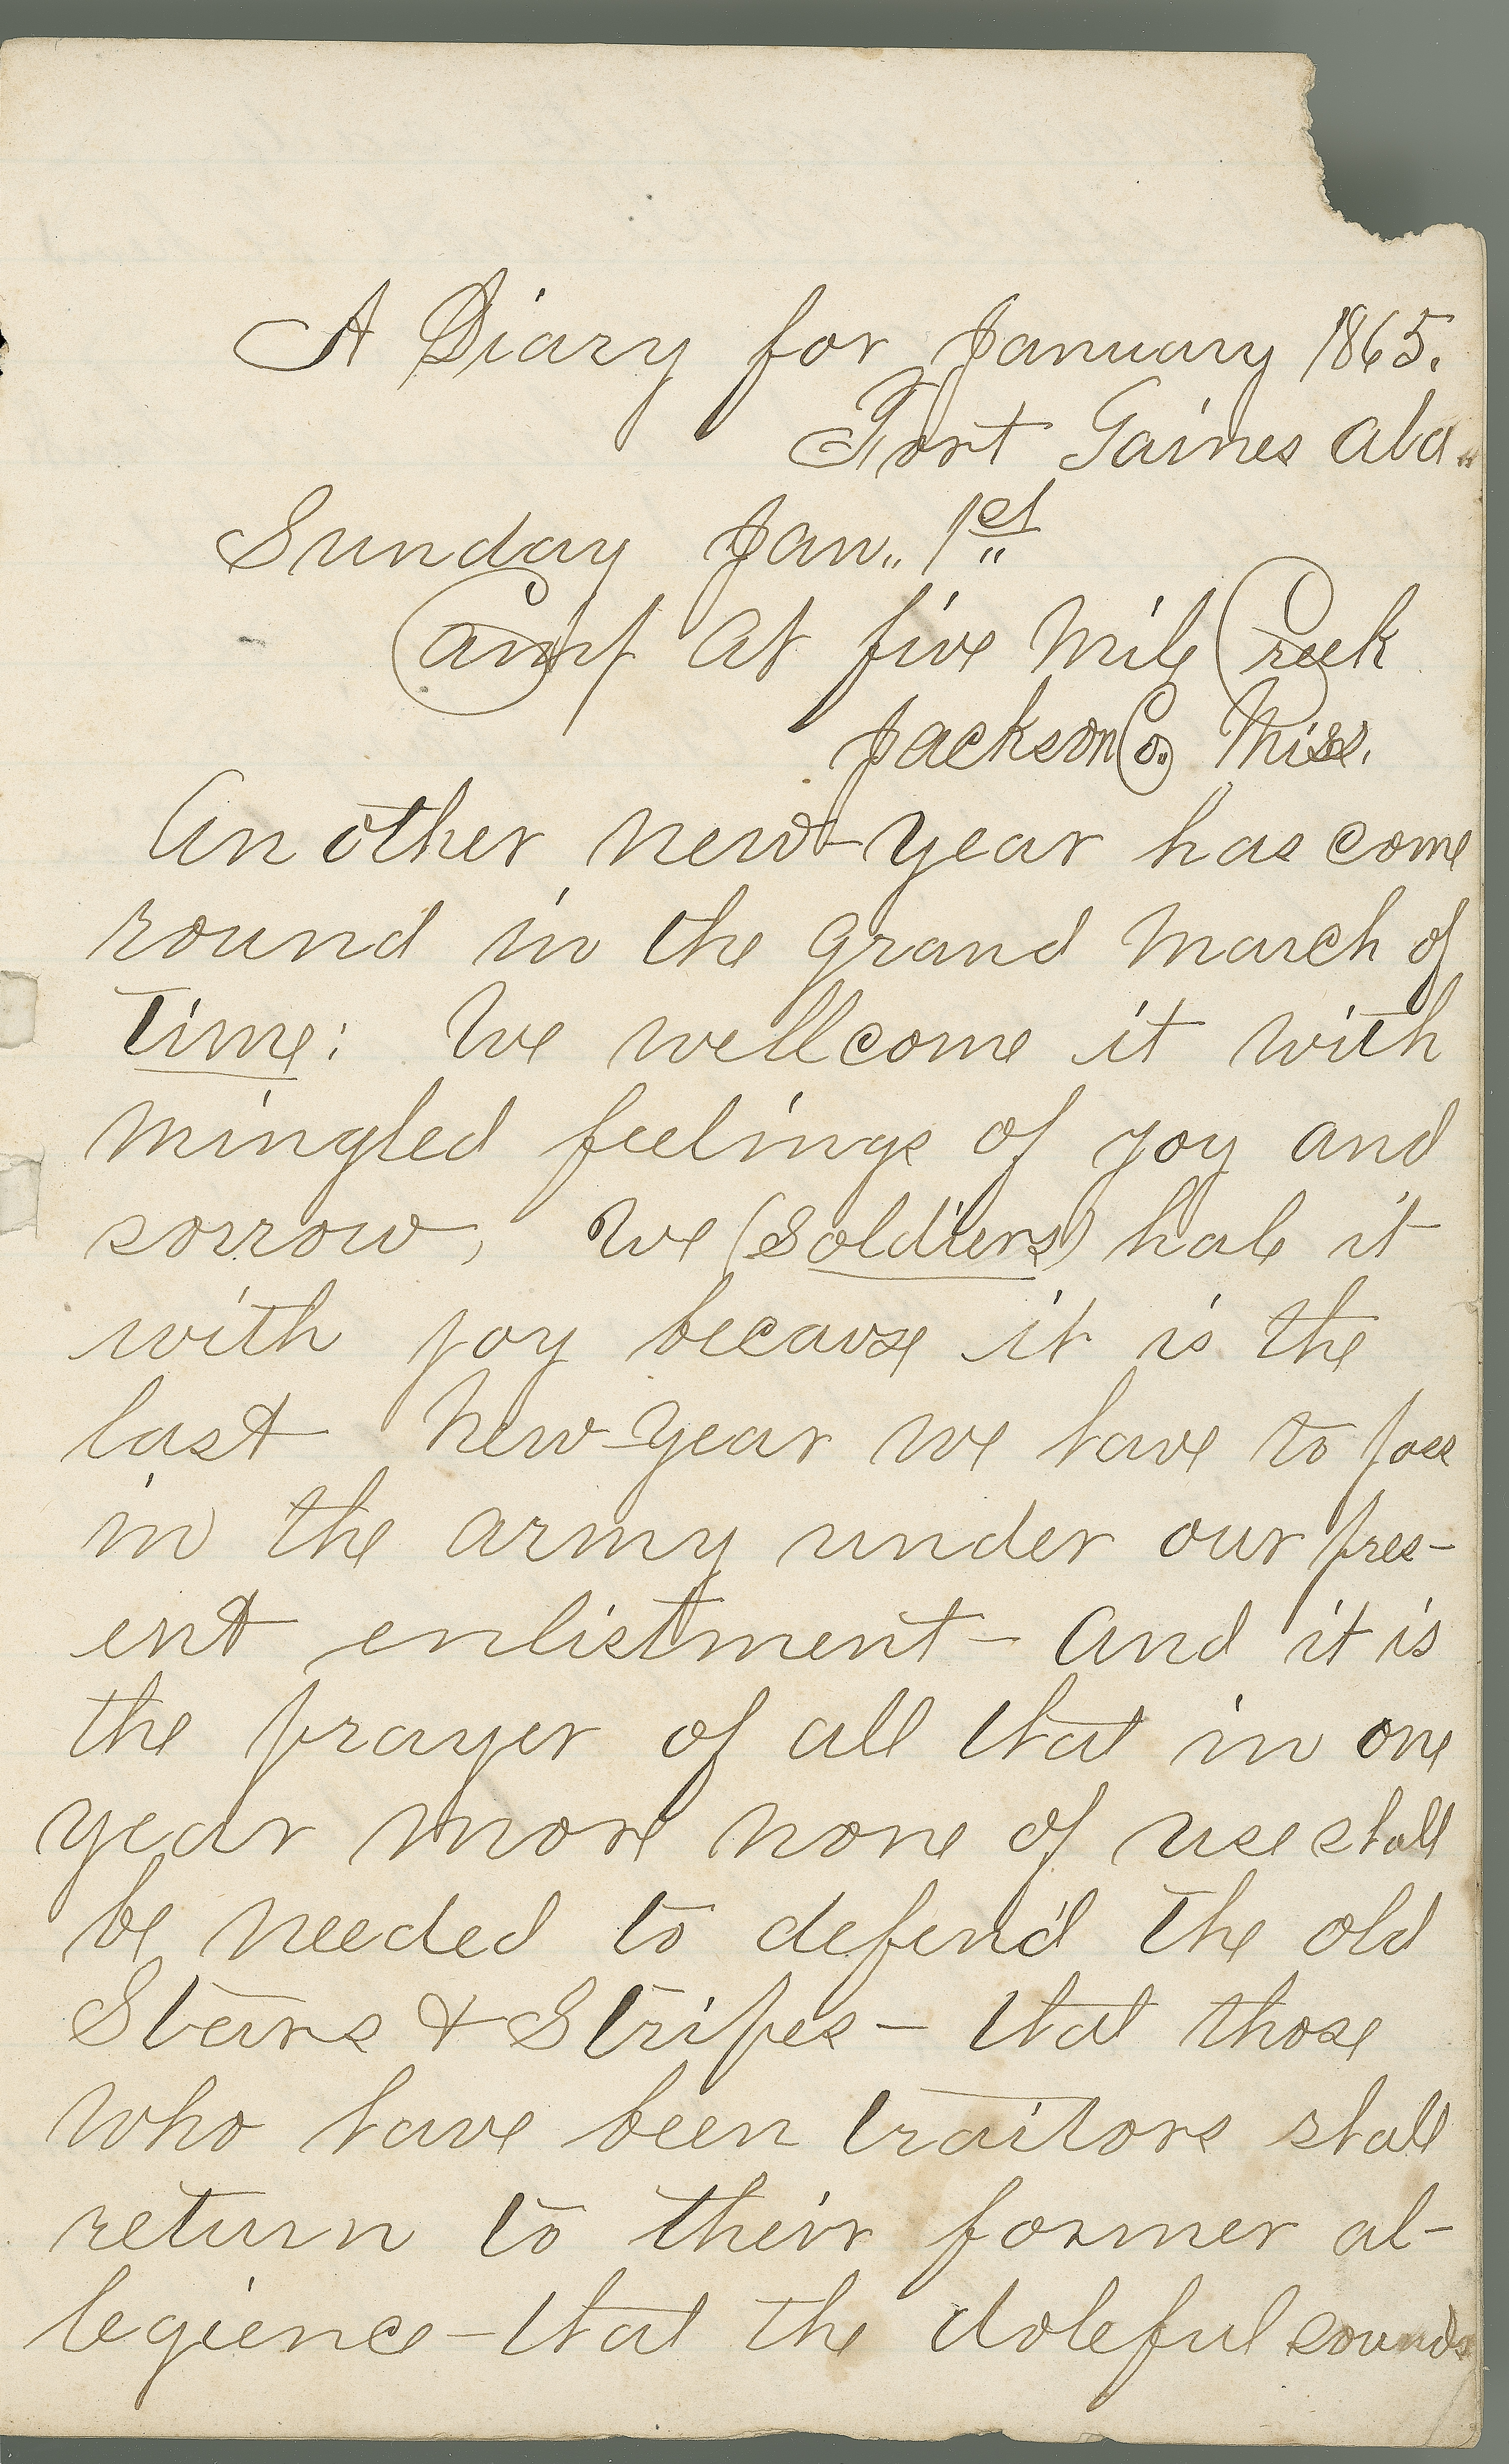 A Diary for January 1865.
Fort Gaines Ala..
Sunday Jan.. 1st
Camp at five Mile Creek
Jackson Co. Miss.
Another new-year has come
round in the grand march of
Time: We wellcome it with
mingled feelings of joy and
sorrow, We (Soldiers) hale it
with joy because it is the
last New-year we have to pass
in the army under our pres-
ent enlistment - and it is
the prayer of all that in one
year more none of use shall
be needed to defend the old
Stars & Stripes - that those
who have been traitors shall
return to their former al-
legience - that the doleful sounds